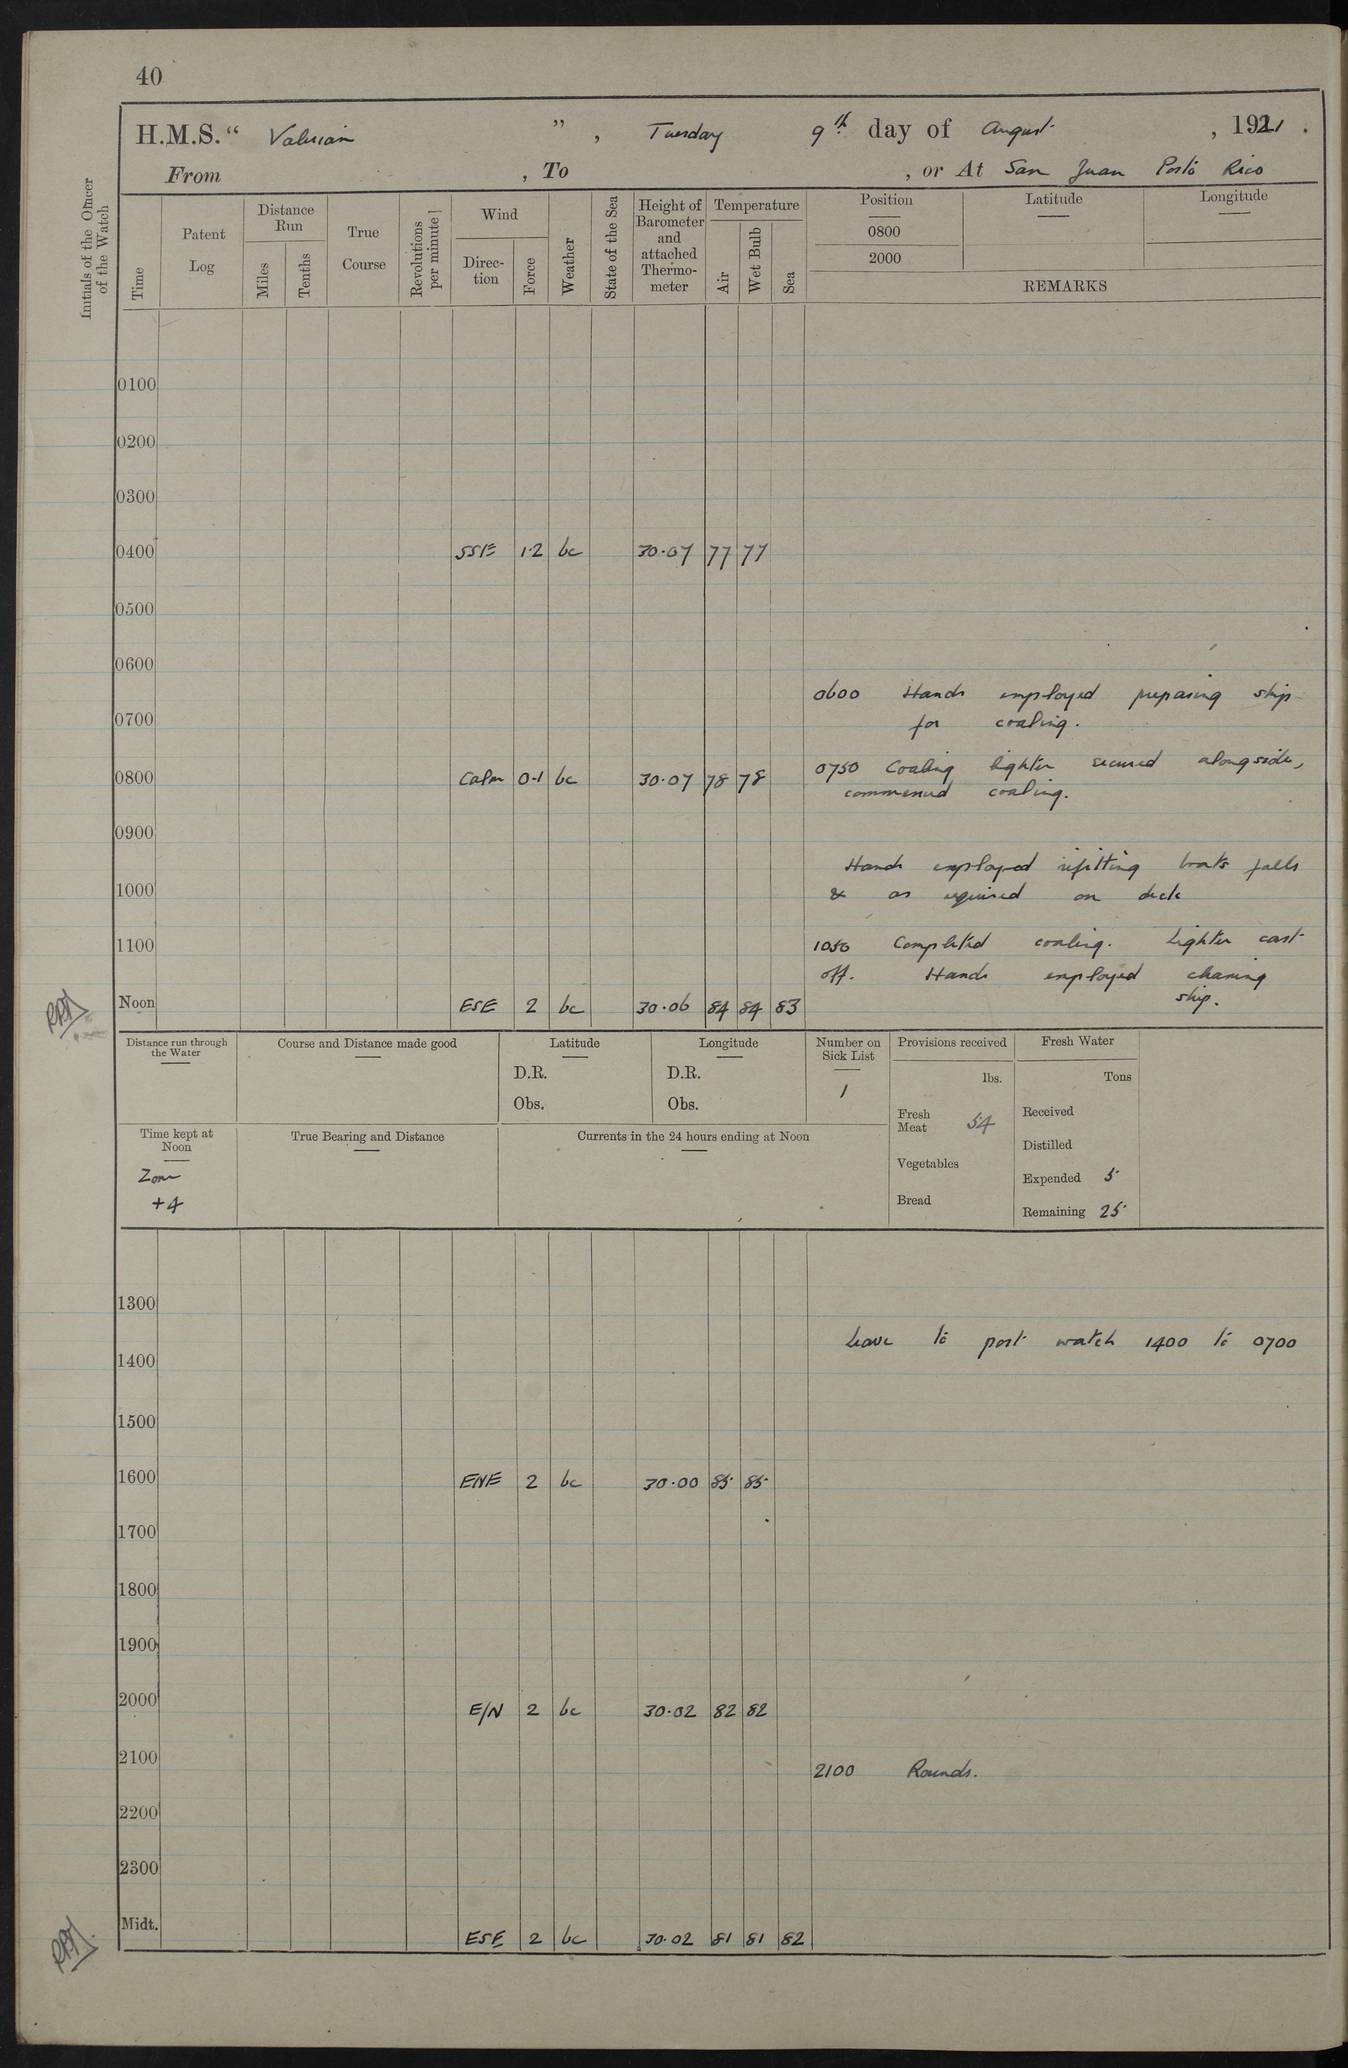 40
H.M.S. “ Valerian ” , Tuesday 9th day of August , 1921 .
From , To , or At San Juan Porto Rico
Initials of the Officer of the Watch
Time
Patent Log
Distance Run
Miles
Tenths
True Course
Revolutions per minute
Wind
Direc-tion
Force
Weather
State of the Sea
Height of Barometer and attached Thermo-meter
Temperature
Air
Wet Bulb
Sea
Position Latitude Longitude
0800
2000
REMARKS
0100
0200
0300
0400 SSE 1.2 bc 30.07 77 77
0500
0600
0600 Hands employed preparing ship
0700 for coaling.
0750 Coaling lighter secured alongside,
0800 Calm 0-1 bc 30.07 78 78
commenced coaling.
0900
Hands employed refitting boats falls
1000 & as required on deck
1100 1050 Completed coaling. Lighter cast
off. Hands employed cleaning
ship.
Noon ESE 2 bc 30.06 84 84 83
Distance run through the Water
Course and Distance made good
Latitude
D.R.
Obs.
Longitude
D.R.
Obs.
Number on Sick List
1
Provisions received
lbs.
Fresh Meat 54
Vegetables
Bread
Fresh Water
Tons
Received
Distilled
Expended 5
Remaining 25
Time kept at Noon
Zone
+4
True Bearing and Distance
Currents in the 24 hours ending at Noon
1300
Leave to port watch 1400 to 0700
1400
1500
1600 ENE 2 bc 30.00 85 85
1700
1800
1900
2000 E/N 2 bc 30.02 82 82
2100 2100 Rounds.
2200
2300
Midt. ESE 2 bc 30.02 81 81 82